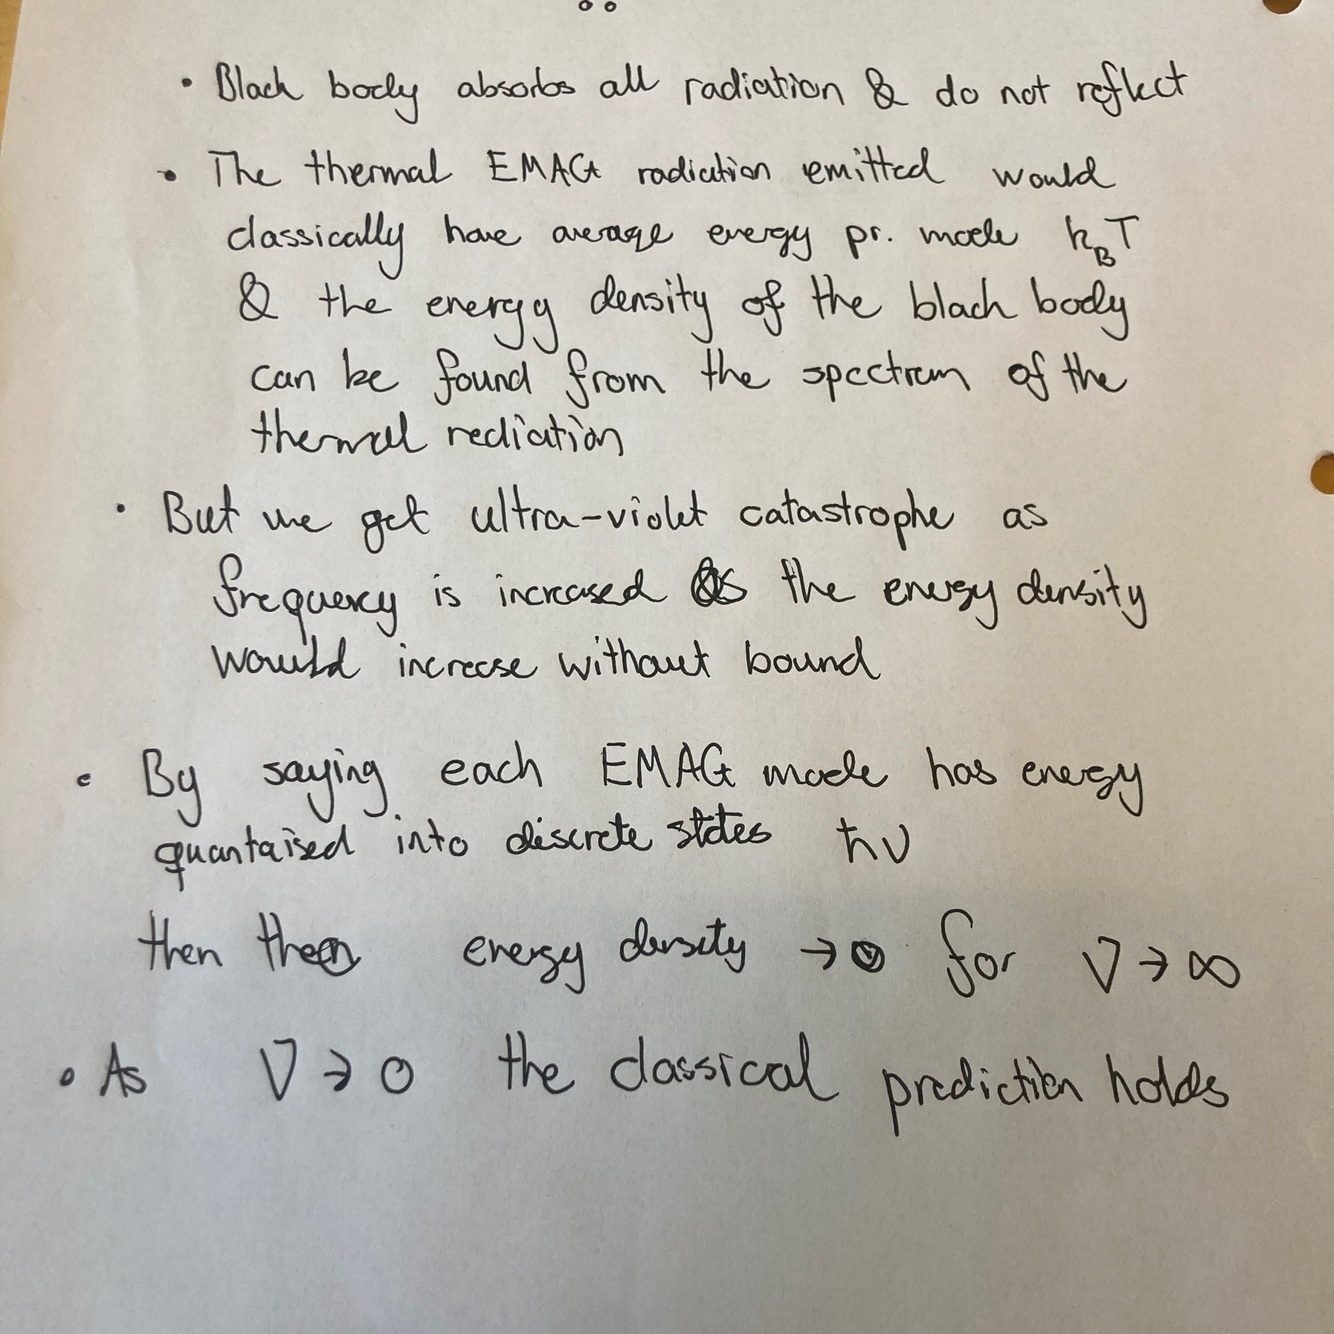 • Black body absorbs all radiation & do not reflect
• The thermal EMAG radiation emitted would
classically have average energy pr. mode k_BT
& the energy density of the black body
can be found from the spectrum of the
thermal rediation
• But we get ultra-violet catastrophe as
frequency is increased as the energy density
would increase without bound
• By saying each EMAG mode has energy
quantaised into discrete states ħν
then then energy density → 0 for ν → ∞
• As ν → 0 the classical prediction holds